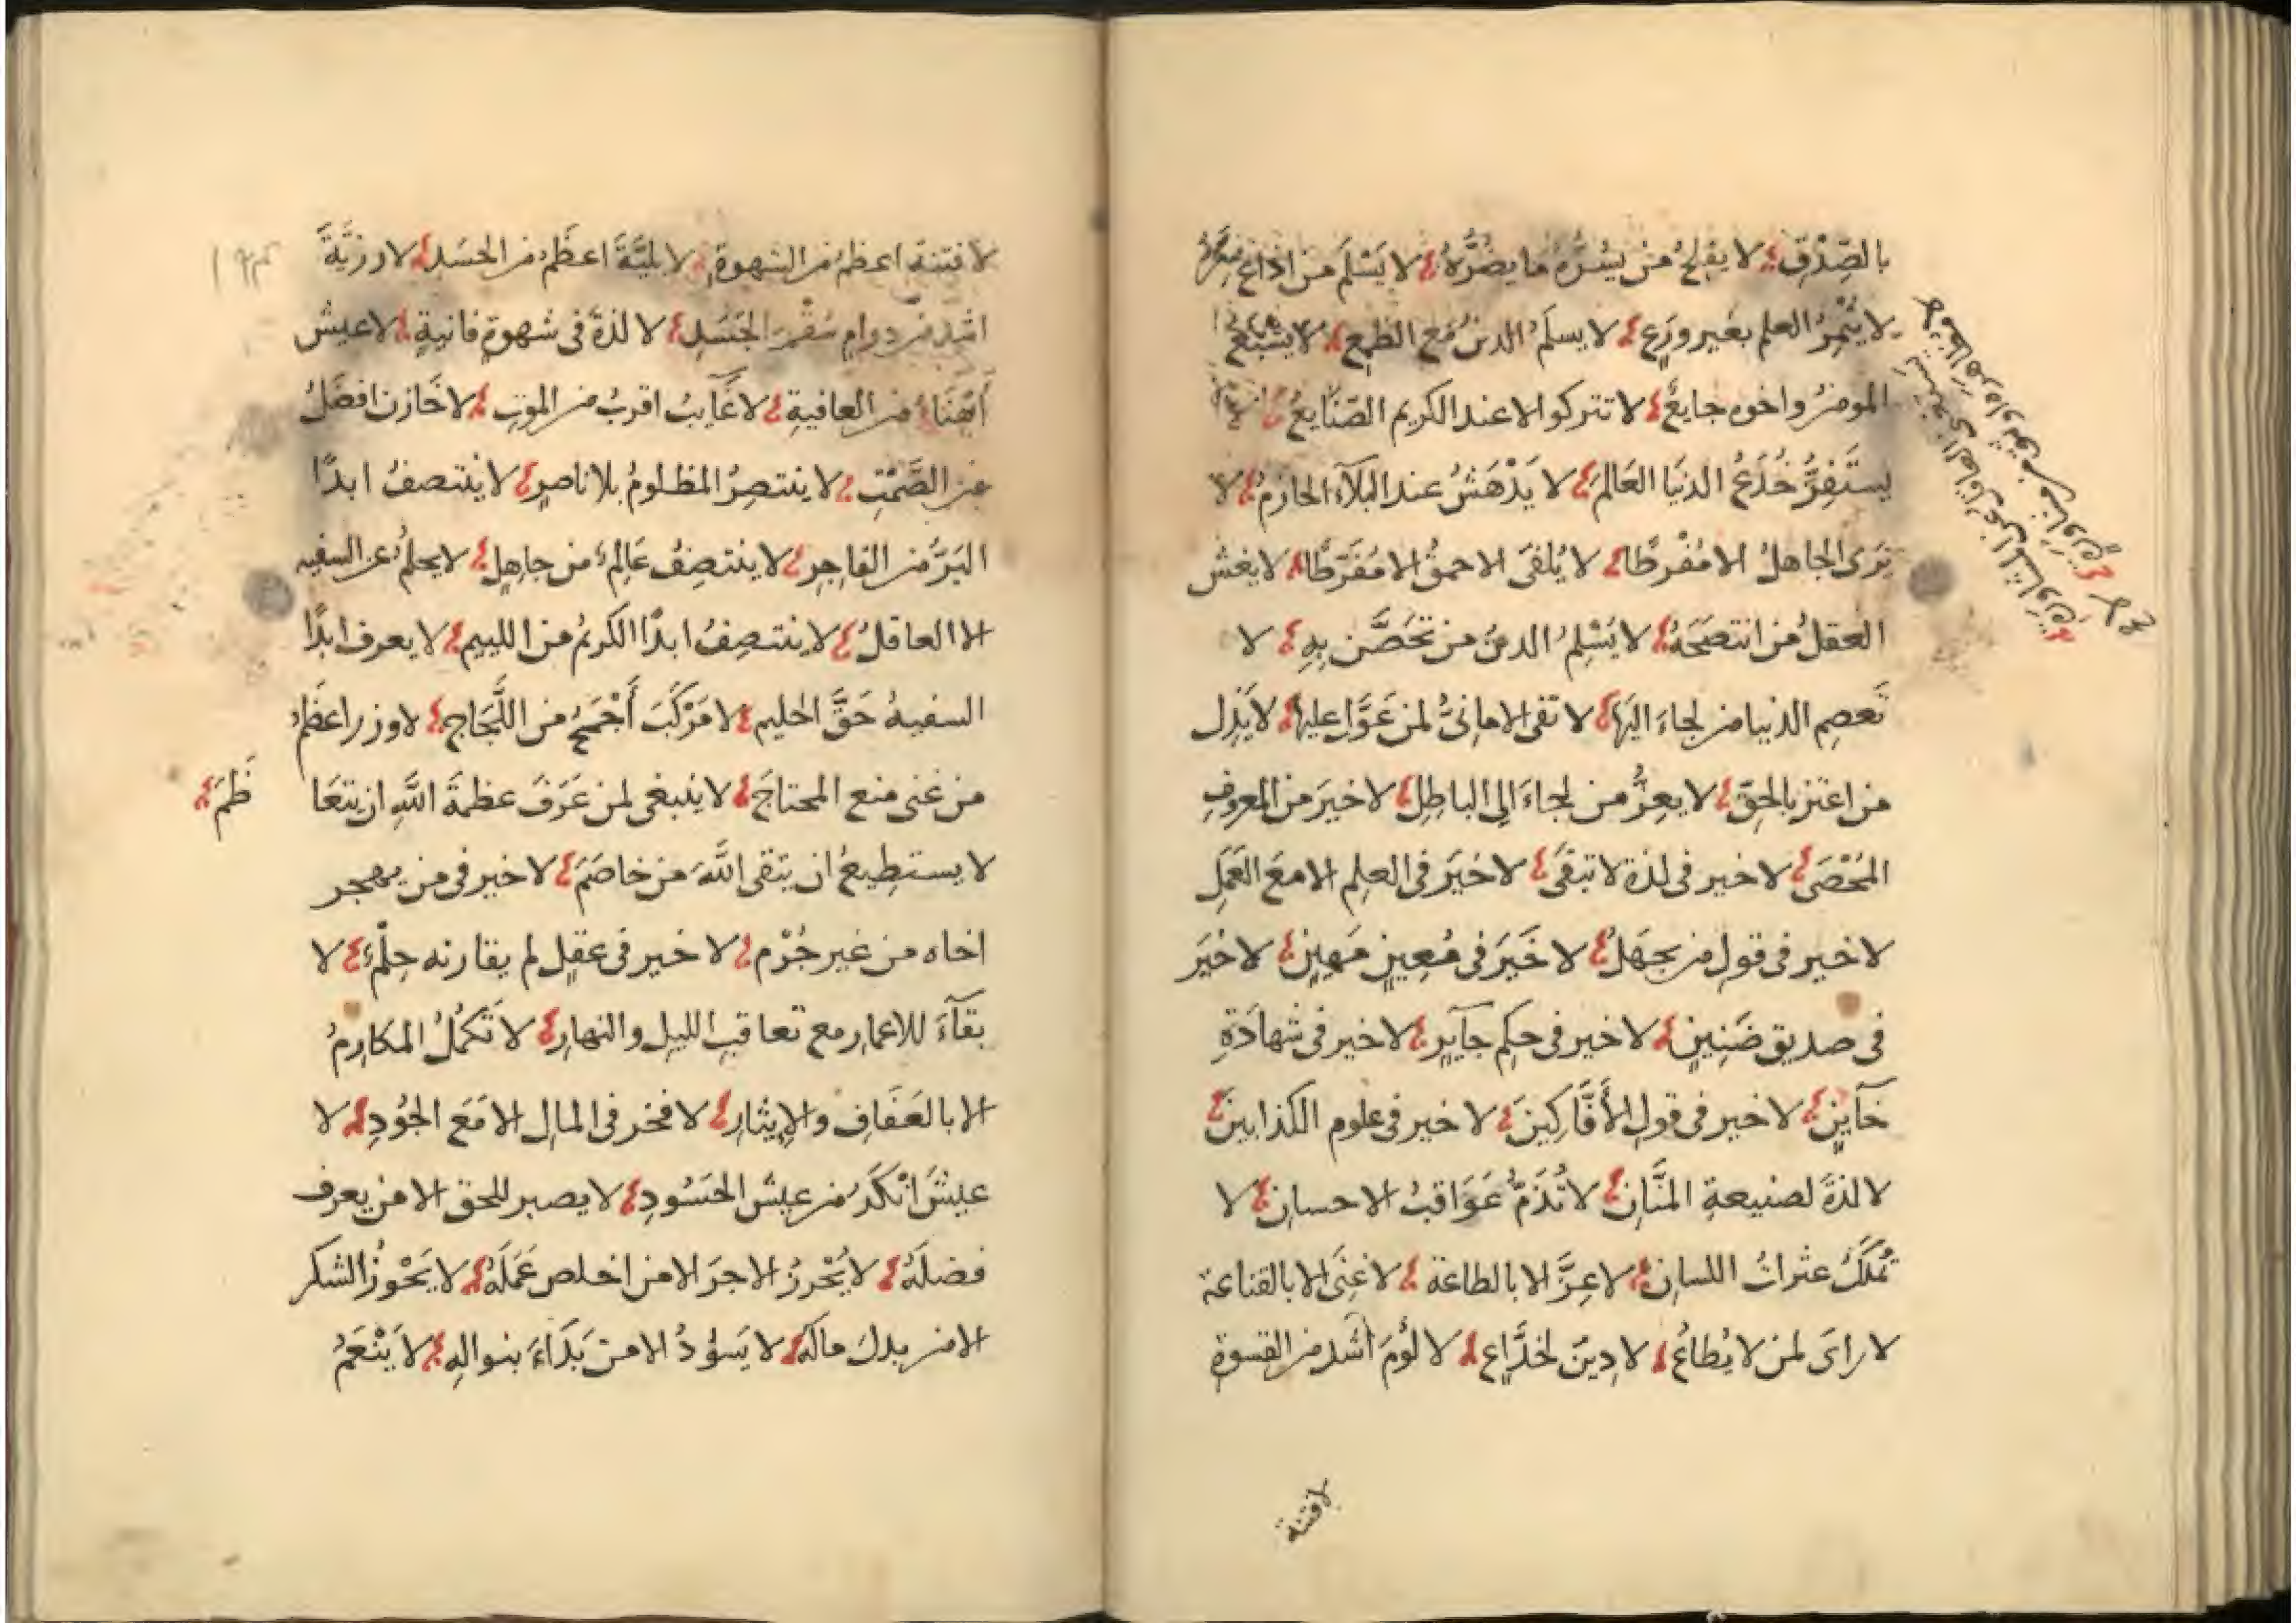 بالصِّدْقِ لا يفلحُ من يسُرُّه ما يضرُّهُ لا يَسْلَم من اذاع سِرَّهُ
لا يُثْمِرُ العلم بغير ورَعٍ لا يسلَمُ الدينُ مَع الطمع لا يشبَعُ
المومنُ واخوه جايعٌ لا تتركوا الا عند الكريم الصّنايعُ لا
يستَفِزُّ خُدَعُ الدنيَا العَالمَ لا يَدْهَشُ عند البَلآء الحازمُ لا
تَرَى الجاهلُ الا مُفْرِطًا لا يُلفَى الاحمقُ الا مُفَرّطًا لا يغش
العقلُ من انتصَحَهُ لا يُسْلِمُ الدينُ من تحَصَّن بِهِ لا
تَعصِم الدنيا من لجاءَ اليَها لا تفى الامانىُّ لمن عَوَّل عليها لا يَذِل
من اعتز بالحقّ لا يعِزُّ من لجاءَ إلى الباطِل لا خيرَ من المعروفِ
المُحْصَى لا خير فى لذة لا تبقَى لا خَيَر فى العلِم الا معَ العَمَلِ
لا خير فى قولِ من يجهَلُ لا خَيَرَ فى مُعِينٍ مَهِينٍ لا خيَر
فى صديق ضَنِينٍ لا خير فى حكِم جآيرٍ لا خير فى شهادَةِ
خآينٍ لا خير فى قولِ الأَفَّاكِينَ لا خير فى علوم الكذابينَ
لا لذةَ لصنيعةِ المنَّانِ لا تُذَمُّ عَوَاقبُ الاحسانِ لا
تُملَكُ عثراتُ اللسانِ لا عِزَّ الا بالطاعة لا غِنَى الا بالقناعة
لا راىَ لمن لا يُطاعُ لا دِينَ لخدَّاعٍ لا لؤمَ اشد من القسوةِ
لا فتنة
لا فتنة اعظمُ من الشهوةِ لا بليَّةَ اعظَمُ من الحسَد لا رزيَّةَ
اشد من دوامِ سُقْمِ الجَسَدِ لا لذةَ فى شهوةٍ فانيةٍ لا عيشُ
أَهْنَاءُ من العافيةِ لا غَآيبُ اقربُ من الموتِ لا خَازن افضَلُ
من الصَّمْتِ لا ينتصِرُ المظلومُ بلا ناصرٍ لا يَنتصفُ ابدًا
البَرّ من الفاجِرِ لا ينتصِفُ عَالِمٌ من جاهِلٍ لا يحلمُ عن السفيه
الا العاقلُ لا ينتصِفُ ابدًا الكريمُ من اللييم لا يعرف ابدًا
السفيهُ حَقَّ الحليم لا مَرْكَبَ أَجْمَحُ من اللَّجَاجِ لا وزر اعظم
من غنى منع المحتاجَ لا ينبغى لمن عَرَفَ عظمةَ اللَّهِ ان يتعَا
ظَمَ
لا يستطِيعُ ان يتقى اللَّهَ من خاصَمَ لا خير فى من يهجر
اخاه من غير جُرْم لا خير فى عقلٍ لم يقارنه حِلْمٌ لا
بقآءَ للاعمارِ مع تعاقبِ الليلِ والنهارِ لا تَكمُلُ المكارِمُ
الا بالعَفَافِ والإيثارِ لا فخر فى المالِ الا مَعَ الجُودِ لا
عيشَ انْكدَ من عيش الحَسُودِ لا يصبر للحق الا من يعرف
فضلَهُ لا يُحْرزُ الاجرَ الا من اخلص عَمَلَهُ لا يَحُوزُ الشكر
الا من بذلَ مالَهُ لا يَسوُدُ الا من بَدَاءَ بنوالِهِ لا يَنْعَمُ